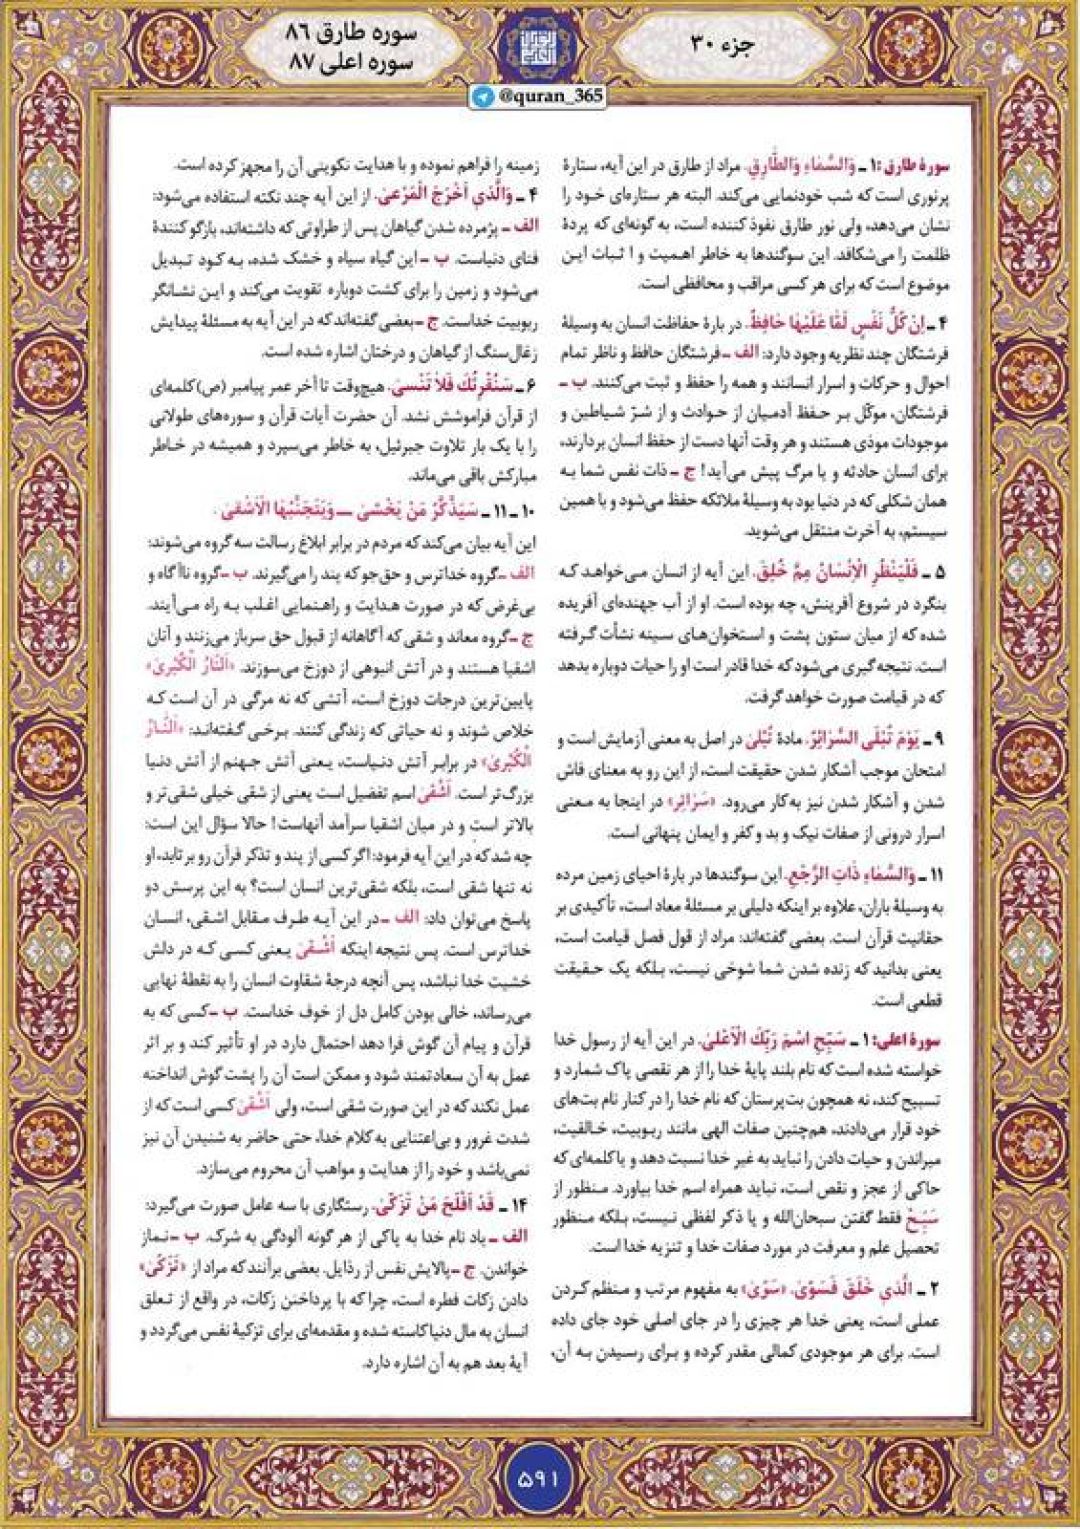 جزء ۳۰
سوره طارق ۸۶
سوره اعلی ۸۷
@quran_365
سورهٔ طارق: ۱ ـ وَالسَّمَاءِ وَالطَّارِقِ. مراد از طارق در این آیه، ستارهٔ
پرنوری است که شب خودنمایی می‌کند. البته هر ستاره‌ای خود را
نشان می‌دهد، ولی نور طارق نفوذ کننده است، به گونه‌ای که پردهٔ
ظلمت را می‌شکافد. این سوگندها به خاطر اهمیت و اثبات این
موضوع است که برای هر کسی مراقب و محافظی است.
۴ ـ اِنْ کُلُّ نَفْسٍ لَمَّا عَلَیْهَا حَافِظٌ. در بارهٔ حفاظت انسان به وسیلهٔ
فرشتگان چند نظریه وجود دارد: الف ـ فرشتگان حافظ و ناظر تمام
احوال و حرکات و اسرار انسانند و همه را حفظ و ثبت می‌کنند. ب ـ
فرشتگان، موکّل بر حفظ آدمیان از حوادث و از شرّ شیاطین و
موجودات موذی هستند و هر وقت آنها دست از حفظ انسان بردارند،
برای انسان حادثه و یا مرگ پیش می‌آید! ج ـ ذات نفس شما به
همان شکلی که در دنیا بود به وسیلهٔ ملائکه حفظ می‌شود و با همین
سیستم، به آخرت منتقل می‌شوید.
۵ ـ فَلْیَنْظُرِ الْاِنْسَانُ مِمَّ خُلِقَ. این آیه از انسان می‌خواهد که
بنگرد در شروع آفرینش، چه بوده است. او از آب جهنده‌ای آفریده
شده که از میان ستون پشت و استخوان‌های سینه نشأت گرفته
است. نتیجه‌گیری می‌شود که خدا قادر است او را حیات دوباره بدهد
که در قیامت صورت خواهد گرفت.
۹ ـ یَوْمَ تُبْلَی السَّرَائِرُ. مادهٔ تُبْلیٰ در اصل به معنی آزمایش است و
امتحان موجب آشکار شدن حقیقت است، از این رو به معنای فاش
شدن و آشکار شدن نیز به‌کار می‌رود. «سَرَائِر» در اینجا به معنی
اسرار درونی از صفات نیک و بد و کفر و ایمان پنهانی است.
۱۱ ـ وَالسَّمَاءِ ذَاتِ الرَّجْعِ. این سوگندها در بارهٔ احیای زمین مرده
به وسیلهٔ باران، علاوه بر اینکه دلیلی بر مسئلهٔ معاد است، تأکیدی بر
حقانیت قرآن است. بعضی گفته‌اند: مراد از قول فصل قیامت است،
یعنی بدانید که زنده شدن شما شوخی نیست، بلکه یک حقیقت
قطعی است.
سورهٔ اعلی: ۱ ـ سَبِّحِ اسْمَ رَبِّکَ الْاَعْلیٰ. در این آیه از رسول خدا
خواسته شده است که نام بلند پایهٔ خدا را از هر نقصی پاک شمارد و
تسبیح کند، نه همچون بت‌پرستان که نام خدا را در کنار نام بت‌های
خود قرار می‌دادند، هم‌چنین صفات الهی مانند ربوبیت، خالقیت،
میراندن و حیات دادن را نباید به غیر خدا نسبت دهد و یا کلمه‌ای که
حاکی از عجز و نقص است، نباید همراه اسم خدا بیاورد. منظور از
سَبِّحْ فقط گفتن سبحان‌الله و یا ذکر لفظی نیست، بلکه منظور
تحصیل علم و معرفت در مورد صفات خدا و تنزیه خدا است.
۲ ـ الَّذِی خَلَقَ فَسَوّیٰ. «سَوّیٰ» به مفهوم مرتب و منظم کردن
عملی است، یعنی خدا هر چیزی را در جای اصلی خود جای داده
است. برای هر موجودی کمالی مقدر کرده و برای رسیدن به آن،
زمینه را فراهم نموده و با هدایت تکوینی آن را مجهز کرده است.
۴ ـ وَالَّذِی اَخْرَجَ الْمَرْعیٰ. از این آیه چند نکته استفاده می‌شود:
الف ـ پژمرده شدن گیاهان پس از طراوتی که داشته‌اند، بازگو کنندهٔ
فنای دنیاست. ب ـ این گیاه سیاه و خشک شده، به کود تبدیل
می‌شود و زمین را برای کشت دوباره تقویت می‌کند و این نشانگر
ربوبیت خداست. ج ـ بعضی گفته‌اند که در این آیه به مسئلهٔ پیدایش
زغال‌سنگ از گیاهان و درختان اشاره شده است.
۶ ـ سَنُقْرِئُکَ فَلَا تَنْسیٰ. هیچ‌وقت تا آخر عمر پیامبر (ص) کلمه‌ای
از قرآن فراموشش نشد. آن حضرت آیات قرآن و سوره‌های طولانی
را با یک بار تلاوت جبرئیل، به خاطر می‌سپرد و همیشه در خاطر
مبارکش باقی می‌ماند.
۱۰ ـ ۱۱ ـ سَیَذَّکَّرُ مَنْ یَخْشیٰ ـ وَیَتَجَنَّبُهَا الْاَشْقیٰ.
این آیه بیان می‌کند که مردم در برابر ابلاغ رسالت سه گروه می‌شوند:
الف ـ گروه خداترس و حق‌جو که پند را می‌گیرند. ب ـ گروه ناآگاه و
بی‌غرض که در صورت هدایت و راهنمایی اغلب به راه می‌آیند.
ج ـ گروه معاند و شقی که آگاهانه از قبول حق سرباز می‌زنند و آنان
اشقیا هستند و در آتش انبوهی از دوزخ می‌سوزند. «اَلنَّارُ الْکُبْریٰ»
پایین‌ترین درجات دوزخ است، آتشی که نه مرگی در آن است که
خلاص شوند و نه حیاتی که زندگی کنند. برخی گفته‌اند: «اَلنَّارُ
الْکُبْریٰ» در برابر آتش دنیاست، یعنی آتش جهنم از آتش دنیا
بزرگ‌تر است. اَشْقیٰ اسم تفضیل است یعنی از شقی خیلی شقی‌تر و
بالاتر است و در میان اشقیا سرآمد آنهاست! حالا سؤال این است:
چه شد که در این آیه فرمود: اگر کسی از پند و تذکر قرآن رو برتابد، او
نه تنها شقی است، بلکه شقی‌ترین انسان است؟ به این پرسش دو
پاسخ می‌توان داد: الف ـ در این آیه طرف مقابل اشقی، انسان
خداترس است. پس نتیجه اینکه اَشْقیٰ یعنی کسی که در دلش
خشیت خدا نباشد، پس آنچه درجهٔ شقاوت انسان را به نقطهٔ نهایی
می‌رساند، خالی بودن کامل دل از خوف خداست. ب ـ کسی که به
قرآن و پیام آن گوش فرا دهد احتمال دارد در او تأثیر کند و بر اثر
عمل به آن سعادتمند شود و ممکن است آن را پشت گوش انداخته
عمل نکند که در این صورت شقی است، ولی اَشْقیٰ کسی است که از
شدت غرور و بی‌اعتنایی به کلام خدا، حتی حاضر به شنیدن آن نیز
نمی‌باشد و خود را از هدایت و مواهب آن محروم می‌سازد.
۱۴ ـ قَدْ اَفْلَحَ مَنْ تَزَکّیٰ. رستگاری با سه عامل صورت می‌گیرد:
الف ـ یاد نام خدا به پاکی از هر گونه آلودگی به شرک. ب ـ نماز
خواندن. ج ـ پالایش نفس از رذایل. بعضی برآنند که مراد از «تَزَکّیٰ»
دادن زکات فطره است، چرا که با پرداختن زکات، در واقع از تعلق
انسان به مال دنیا کاسته شده و مقدمه‌ای برای تزکیهٔ نفس می‌گردد و
آیهٔ بعد هم به آن اشاره دارد.
۵۹۱